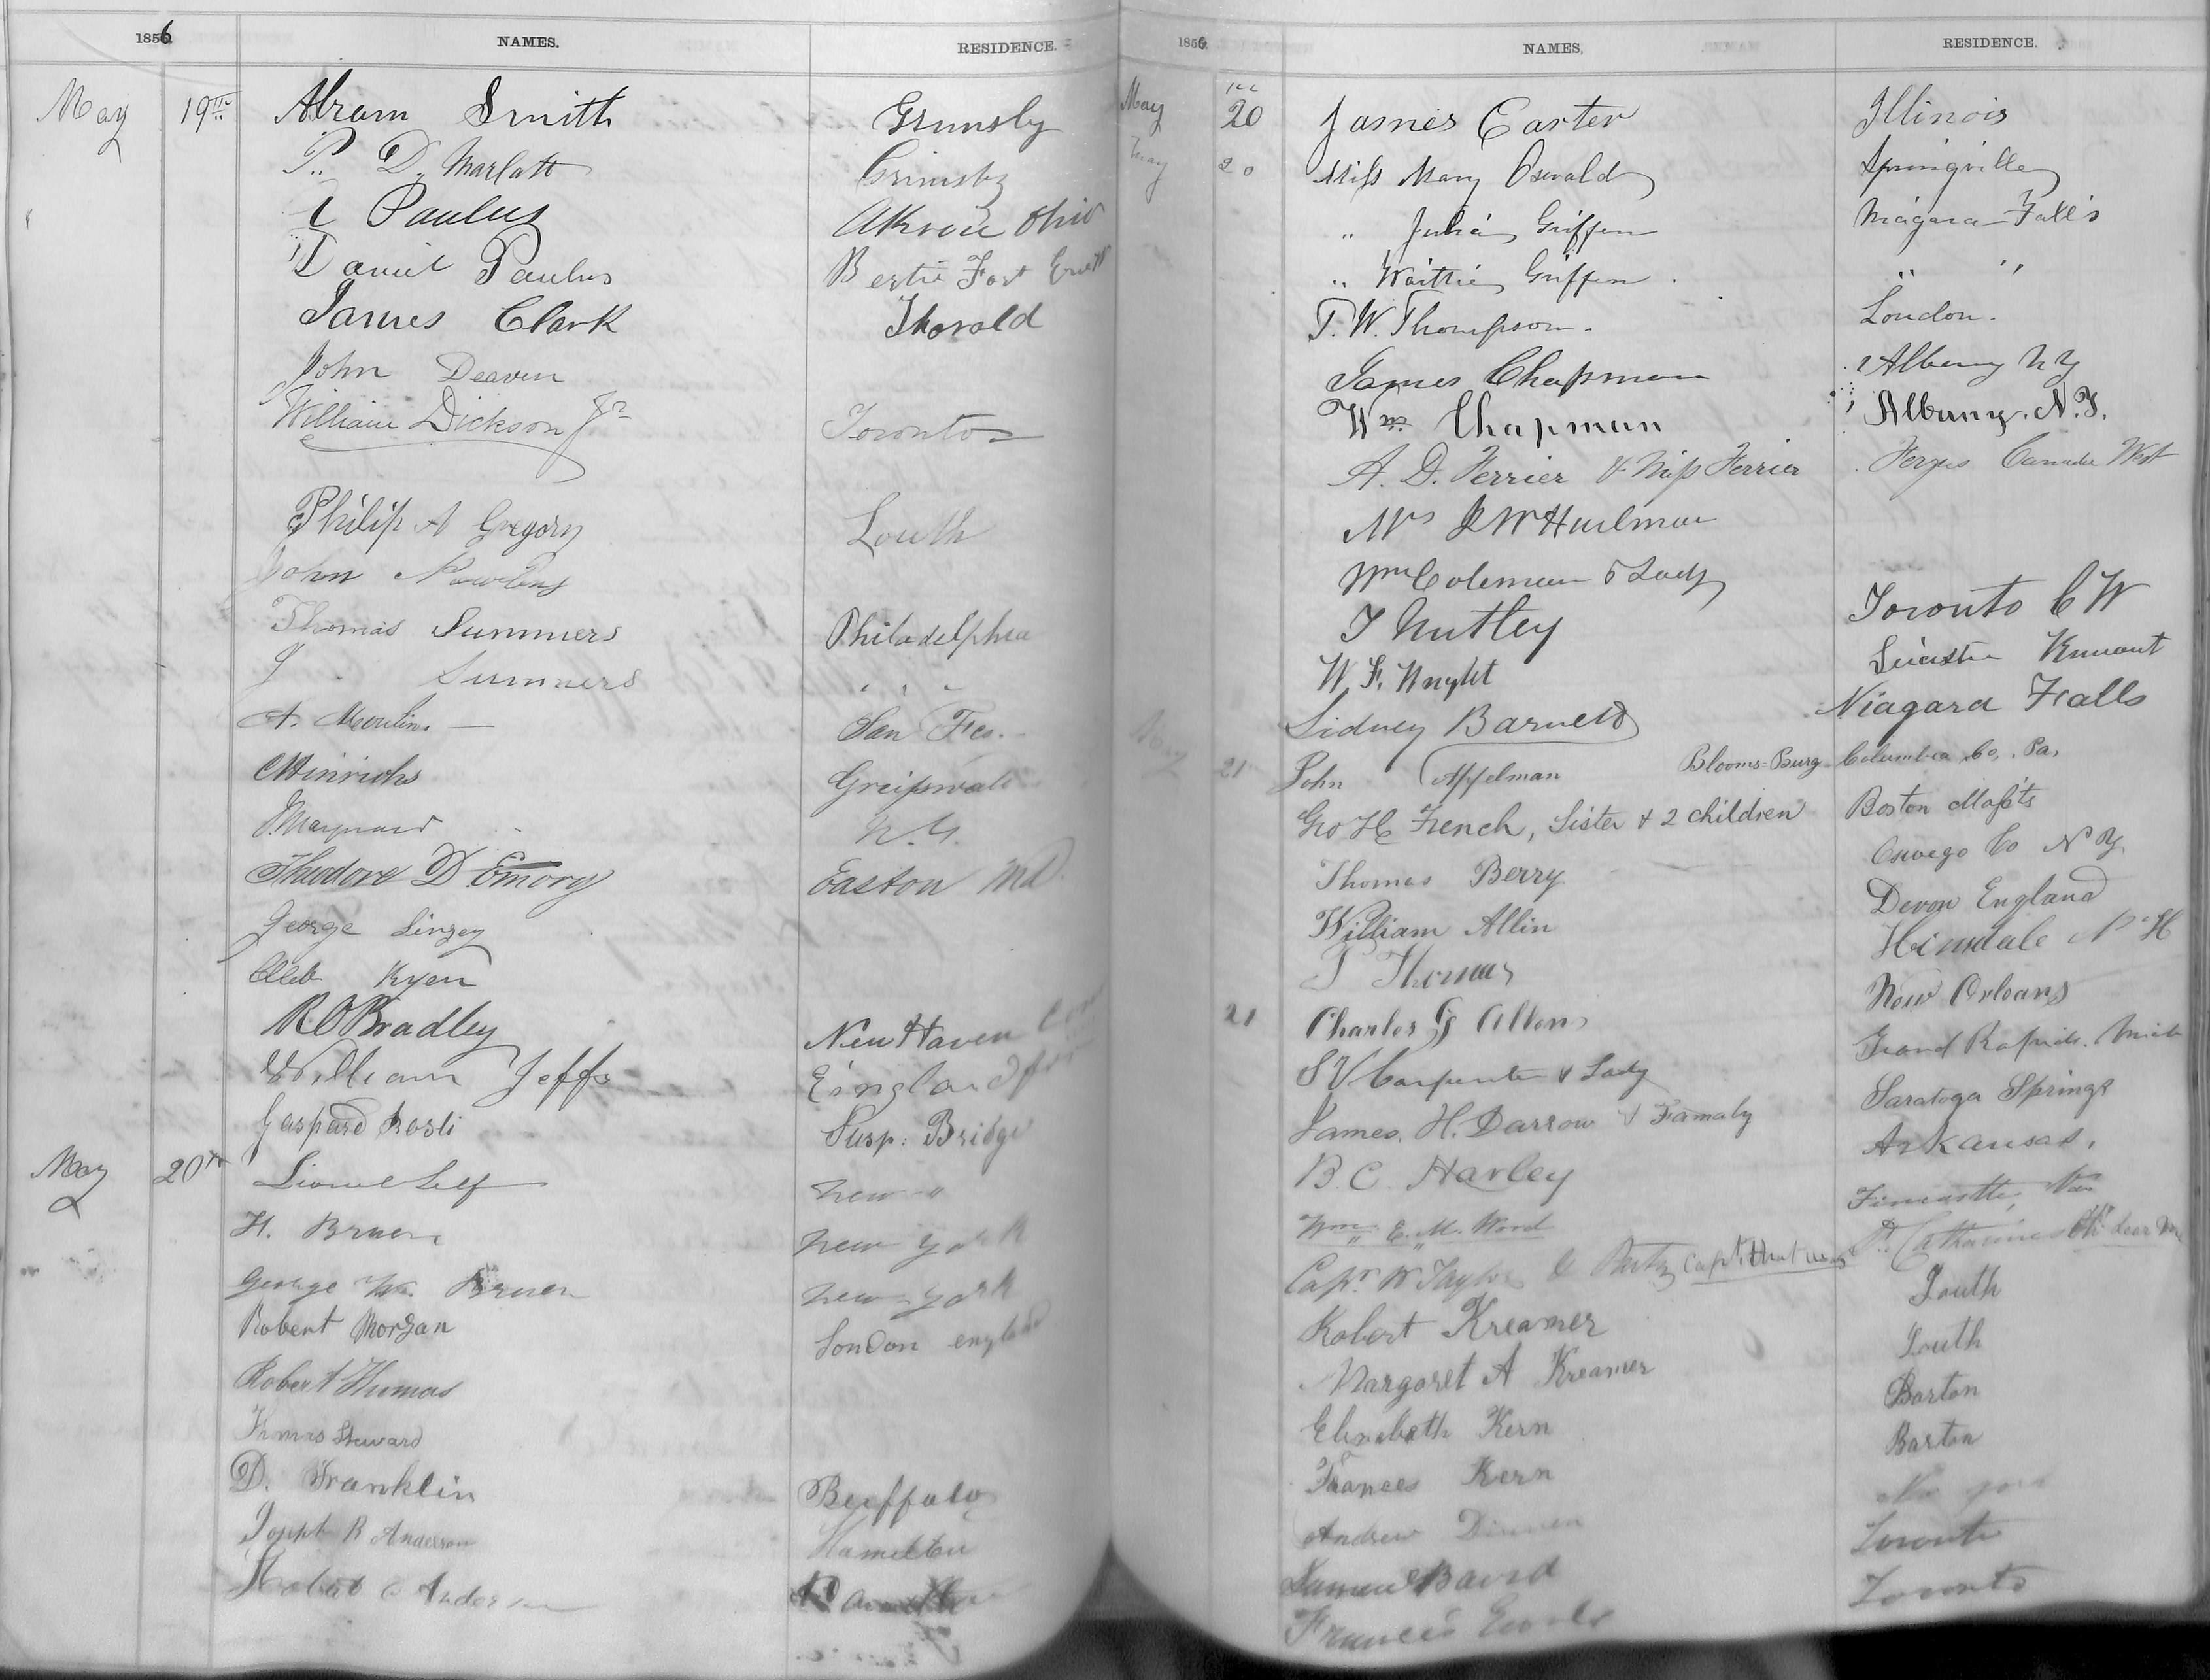 1856 NAMES. RESIDENCE.
May 19th Abram Smith Grimsby
P. D. Marlatt Grimsby
Paulus Akron Ohio
Daniel Paulus Bertie Fort
James Clark Thorold
John Deaven
William Dickson Jr Toronto
Philip A Gregory Louth
John
Thomas Summers Philadelphia
J Summers " " "
A. San Fco.
CHinrichs Greifswald
J. Maynard N.Y.
Theodore D Emory Easton Md.
George Linzey
Kyen
R O Bradley New Haven
William Jeffs England
Gaspard Rosli Susp: Bridge
May 20th Lionel Self new "
H. Bruen new york
George W. Bruen new york
Robert Morgan London england
Robert Thomas
Thomas Steward
D. Franklin Bueffalo
Joseph R Anderson Hamilton
Anderson
1856 NAMES. RESIDENCE.
May 20 James Carter Illinois
May 20 Miss Mary Oswald Springville
" Julia Griffen Niagara Falls
" Waittie Griffen " "
T. W. Thompson. London.
James Chapman Albany N Y
Wm. Chapman Albany. N.Y.
A. D. Ferrier & Miss Ferrier Fergus Canada West
Mrs
Wm Coleman & Lady
T Nutley Toronto C W
W. F. Wright
Sidney Barnett Niagara Falls
May 21 John Appelman Blooms-Burg Columbia Co, Pa,
Geo H French, Sister & 2 children Boston Massts
Thomas Berry Oswego Co N Y.
William Allin Devon England
T Thomas Hinsdale N H
21 Charles G Allen New Orleans
S V Carpenter & Lady Grand Rapids. Mich
James. H. Darrow & Famaly Saratoga Springs
B. C. Harley Arkansas.
Wm E. M. Word Fincastle, Va
Capt W Taylor & Party Capt. that was St. Catharines Oh dear me
Robert Kreamer Louth
Margaret A Kreamer Louth
Elizabeth Kern Barton
Frances Kern Barton
Andrew
Baird Toronto
Francis Toronto